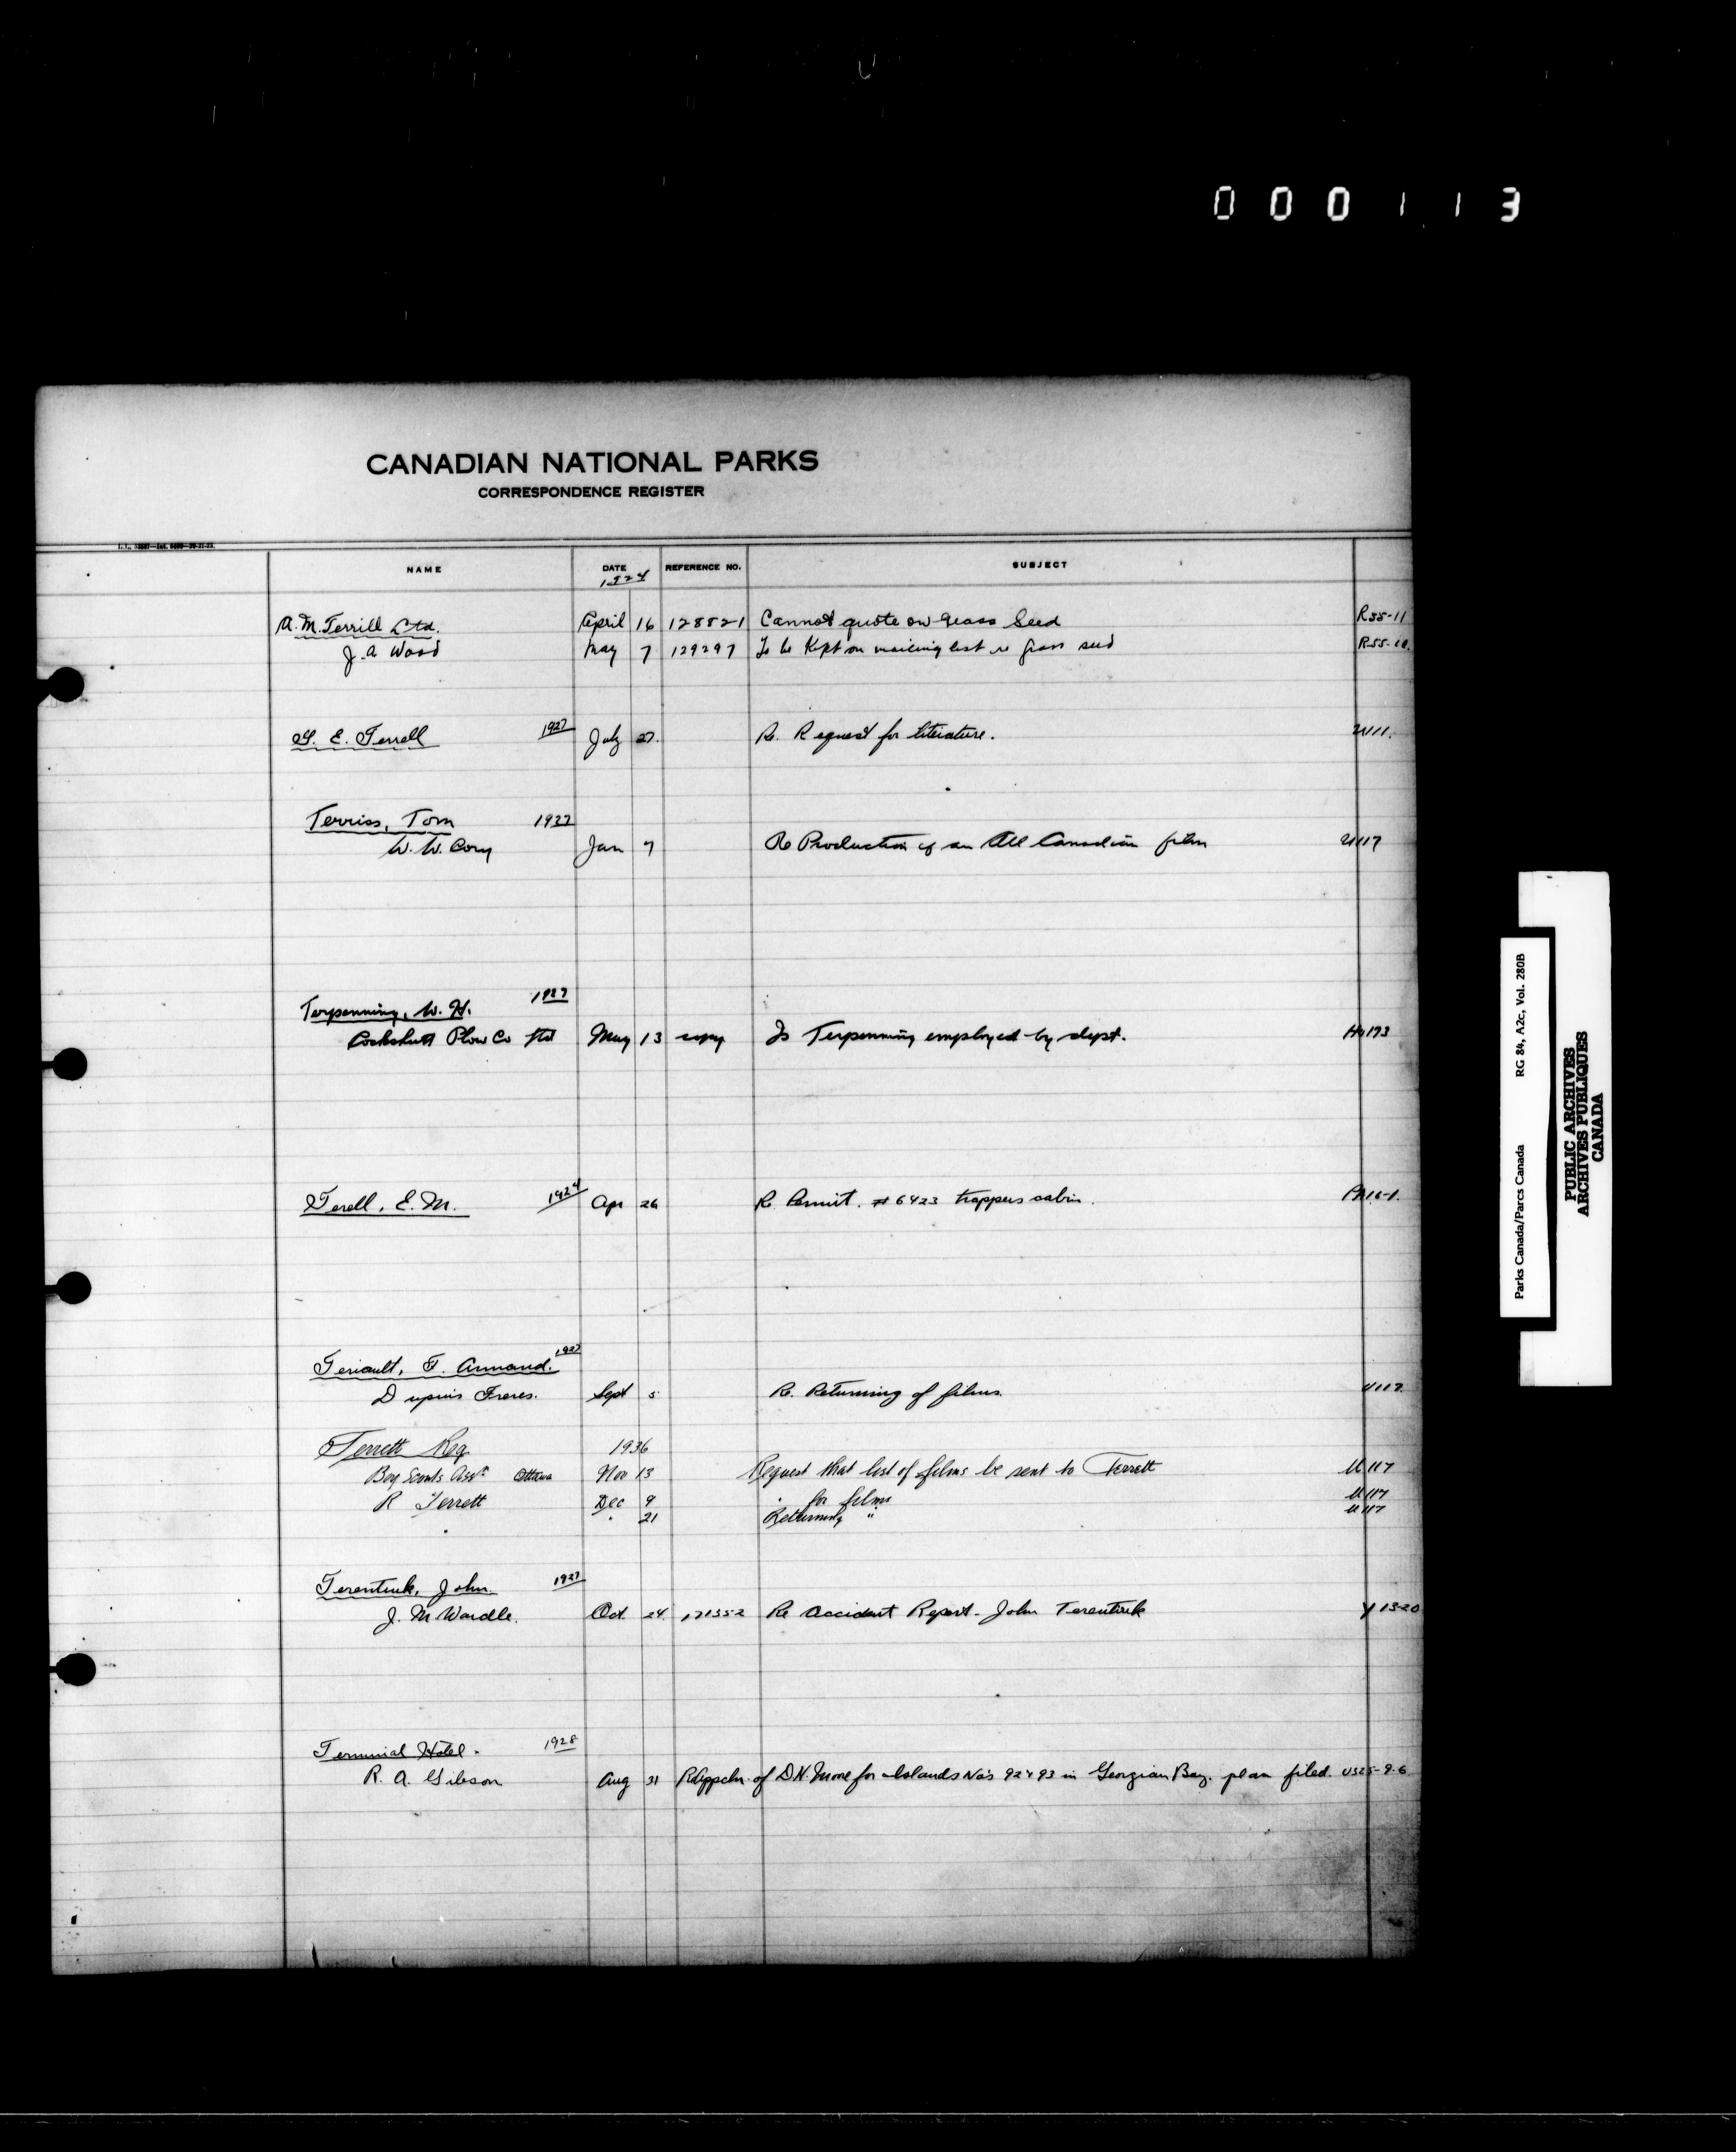 000113
CANADIAN NATIONAL PARKS
CORRESPONDENCE REGISTER
NAME DATE REFERENCE NO. SUBJECT
1924
A. M. Terrill Ltd. April 16 128821 Cannot quote on Grass Seed R55-11
J. A. Wood May 7 129297 To be Kept on mailing list re grass seed R55-10.
G. E. Terrell 1927 July 27. Re. Request for literature. U11.
Terriss, Tom 1927
W. W. Cory Jan 7 Re Production of an All Canadian film U117
Terpenning, W. H. 1927
Cockshutt Plow Co Ltd May 13 copy Is Terpenning employed by dept. 173
Terell, E. M. 1924 Apr 26 Re. Permit. #6423 trappers cabin. 16-1.
Teriault, F. Armand. 1927
Dupuis Freres. Sept 5 Re. Returning of films. U117
Terrett Reg 1936
Boy Scouts Assn Ottawa Nov 13 Request that list of films be sent to Terrett U117
R Terrett Dec 9 " for films U117
" 21 Returning " U117
Terentiuk, John. 1927
J. M. Wardle. Oct. 24. 171352 Re Accident Report - John Terentiuk 1320
Terminial Hotel. 1928
R. A. Gibson Aug 31 Re Appcln. of D. N. More for Islands No's 92 & 93 in Georgian Bay. plan filed. U325-9-6
Parks Canada/Parcs Canada RG 84, A2c, Vol. 280B
PUBLIC ARCHIVES
ARCHIVES PUBLIQUES
CANADA